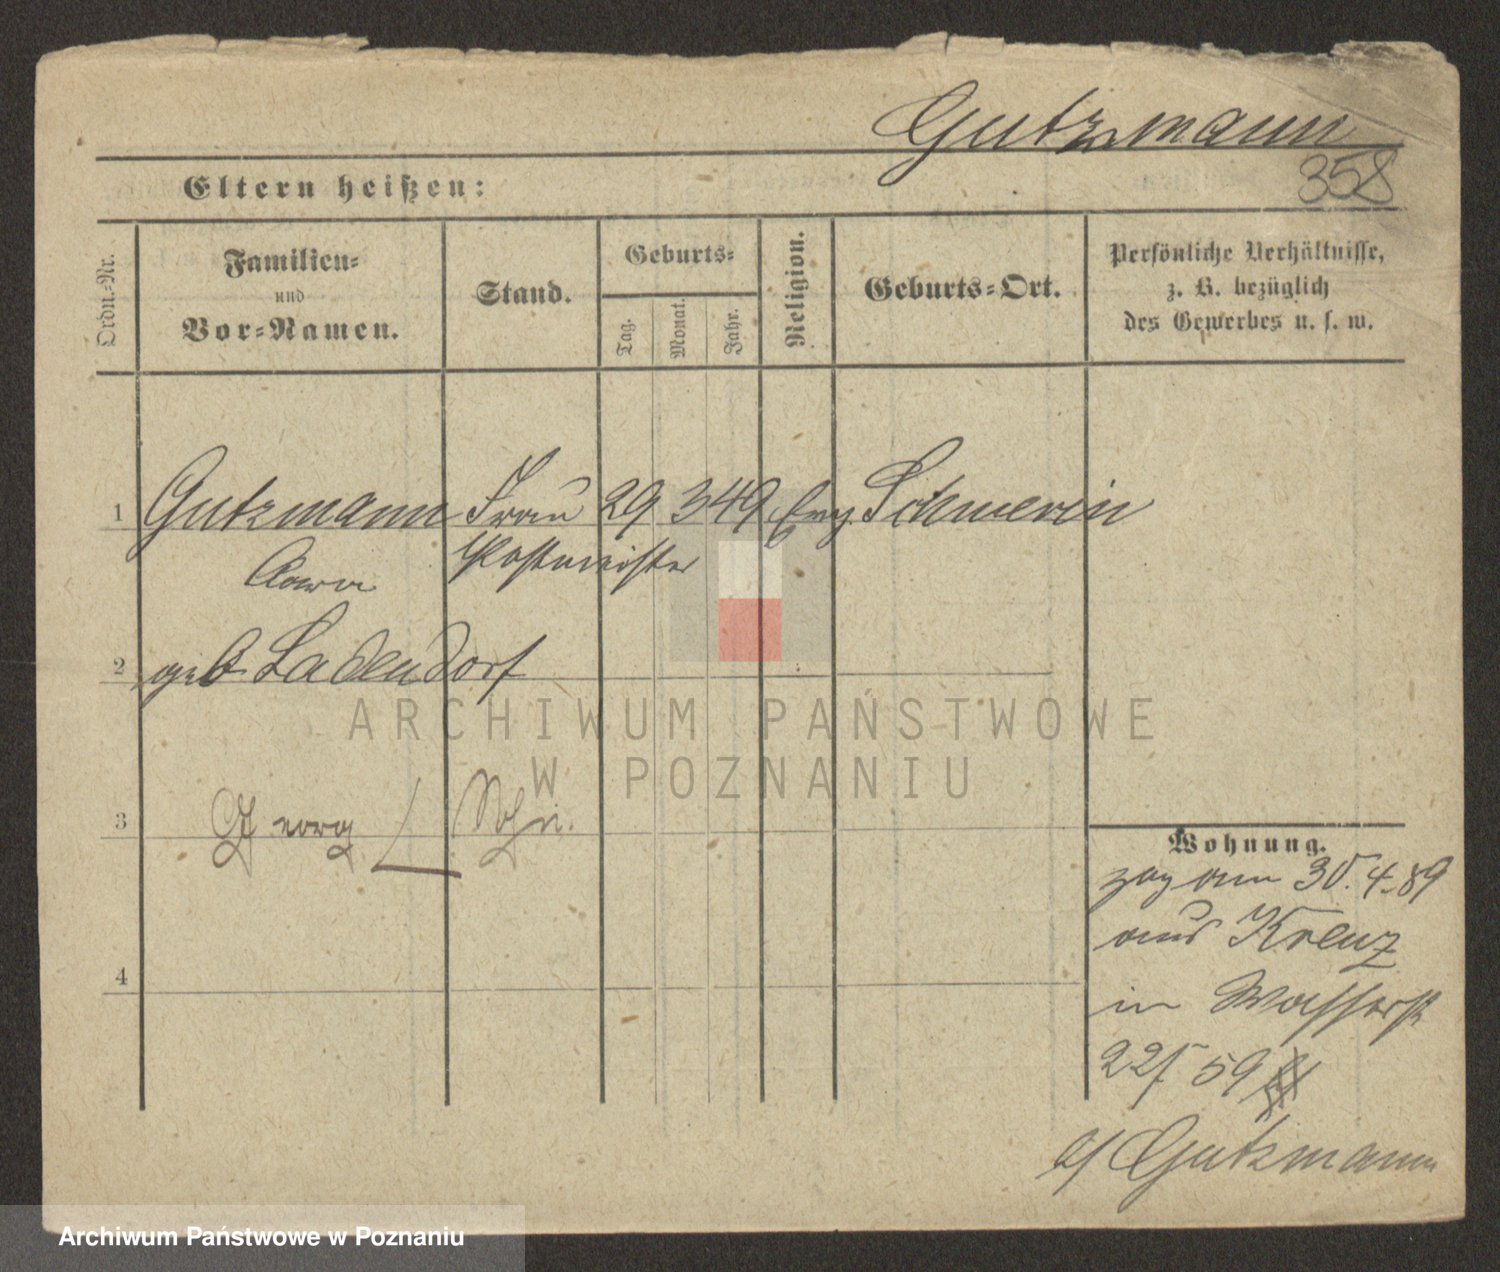 Gutzmann
358
Eltern heißen:
Ordn.-Nr.
Familien-
und
Vor-Namen.
Stand.
Geburts-
Tag.
Monat.
Jahr.
Religion.
Geburts-Ort.
Persönliche Verhältnisse,
z. B. bezüglich
des Gewerbes u. s. w.
1 Gutzmann Frau 29 3 49 Evg Schwerin
Postmeister
2 geb Ladendorf
3 Georg Sohn.
4
Wohnung.
zog am 30.4.89
aus Kreuz
in Wasserstr
22 59
b/ Gutzmann
ARCHIWUM PAŃSTWOWE
W POZNANIU
Archiwum Państwowe w Poznaniu